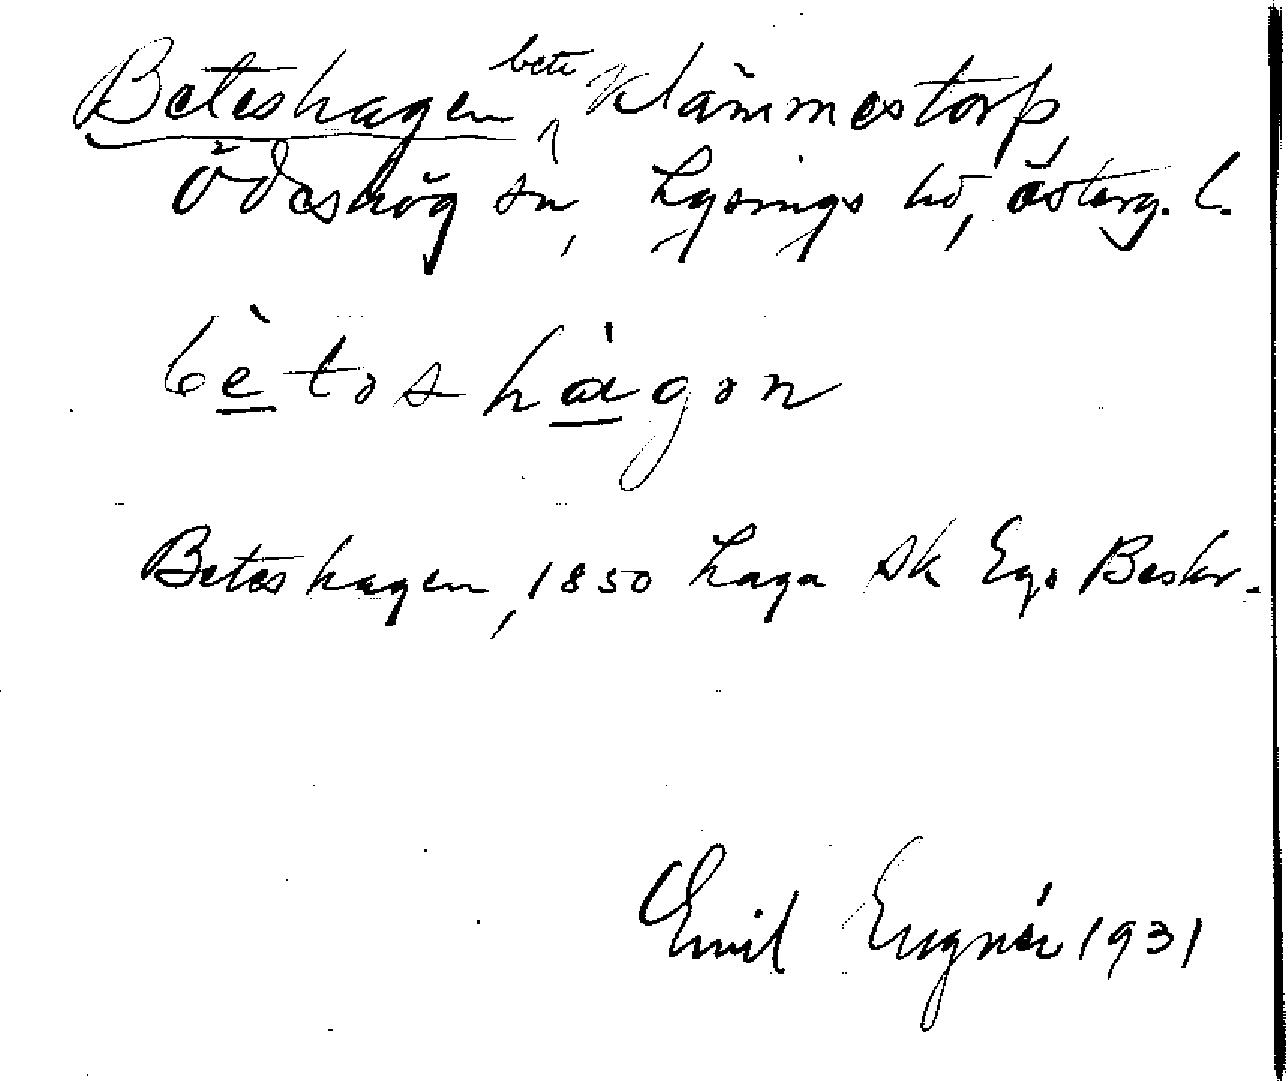 Beteshagen bete Klämmestorp,
Ödeshög sn, Lysings hd, Österg. l.
bètəshàgən
Beteshagen, 1850 Laga Sk Ego Beskr.
Emil Eugnér 1931